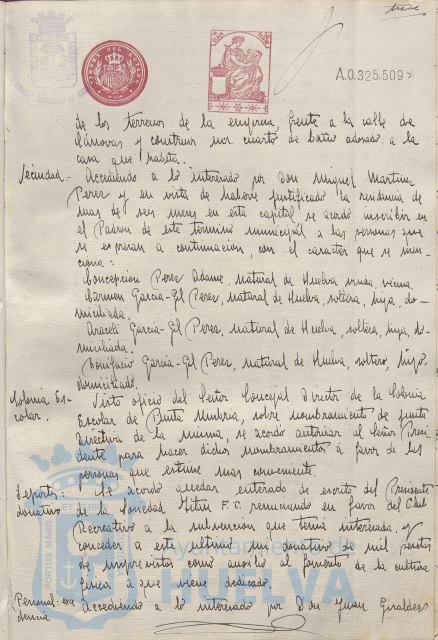 trece
A.0.325.509*
de los terrenos de la empresa frente a la calle de
Cánovas y construir un cuarto de baño adosado a la
casa que habita.
Vecindad- Accediendo a lo interesado por Don Miguel Martin
Perez y en vista de haberse justificado la residencia de
mas de seis meses en esta capital se acordó inscribir en
el Padron de este termino municipal a las personas que
se expresan a continuacion, con el caracter que se men-
ciona:
Concepcion Perez Adame, natural de Huelva viuda, vecina.
Carmen Garcia-Gil Perez, natural de Huelva, soltera, hija do-
miciliada.
Araceli Garcia-Gil Perez, natural de Huelva, soltera, hija, do-
miciliada.
Bonifacio Garcia-Gil Perez, natural de Huelva, soltero, hijo,
domiciliado.
Colonia Es-
colar. Visto oficio del Señor Concejal Director de la Colonia
Escolar de Punta Umbria, sobre nombramiento de Junta
Directiva de la misma, se acordó autorizar al Señor Presi
dente para hacer dichos nombramientos a favor de las
personas que estime mas conveniente.
Deportes: Se acordó quedar enterado de escrito del Presidente
donativo de la Sociedad Titan F.C. renunciando en favor del Club
Recreativo a la subvencion que tenia interesada, y
conceder a este ultimo un donativo de mil pesetas
de imprevistos como auxilio al fomento de la cultura
fisica a que viene dedicado.
Personal: exce
dencia. Accediendo a lo interesado por Don Juan Giraldez
PORTUS MARIS
Ayuntamiento de
HUELVA